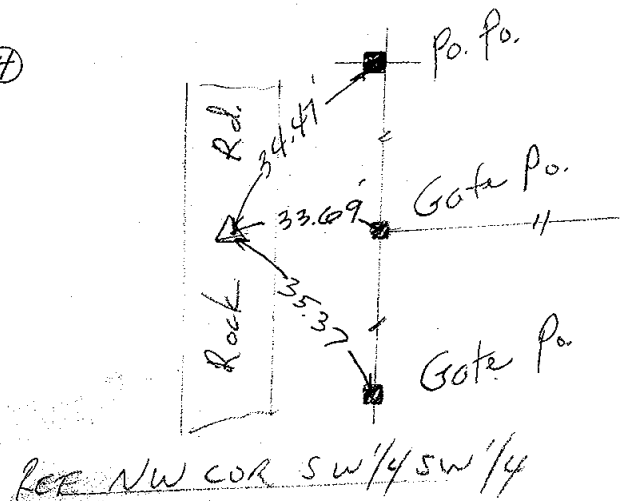 4
Po. Po.
Rd.
34.41'
Gate Po.
33.69'
Rock
35.37
Gate Po.
REF NW COR SW 1/4 SW 1/4